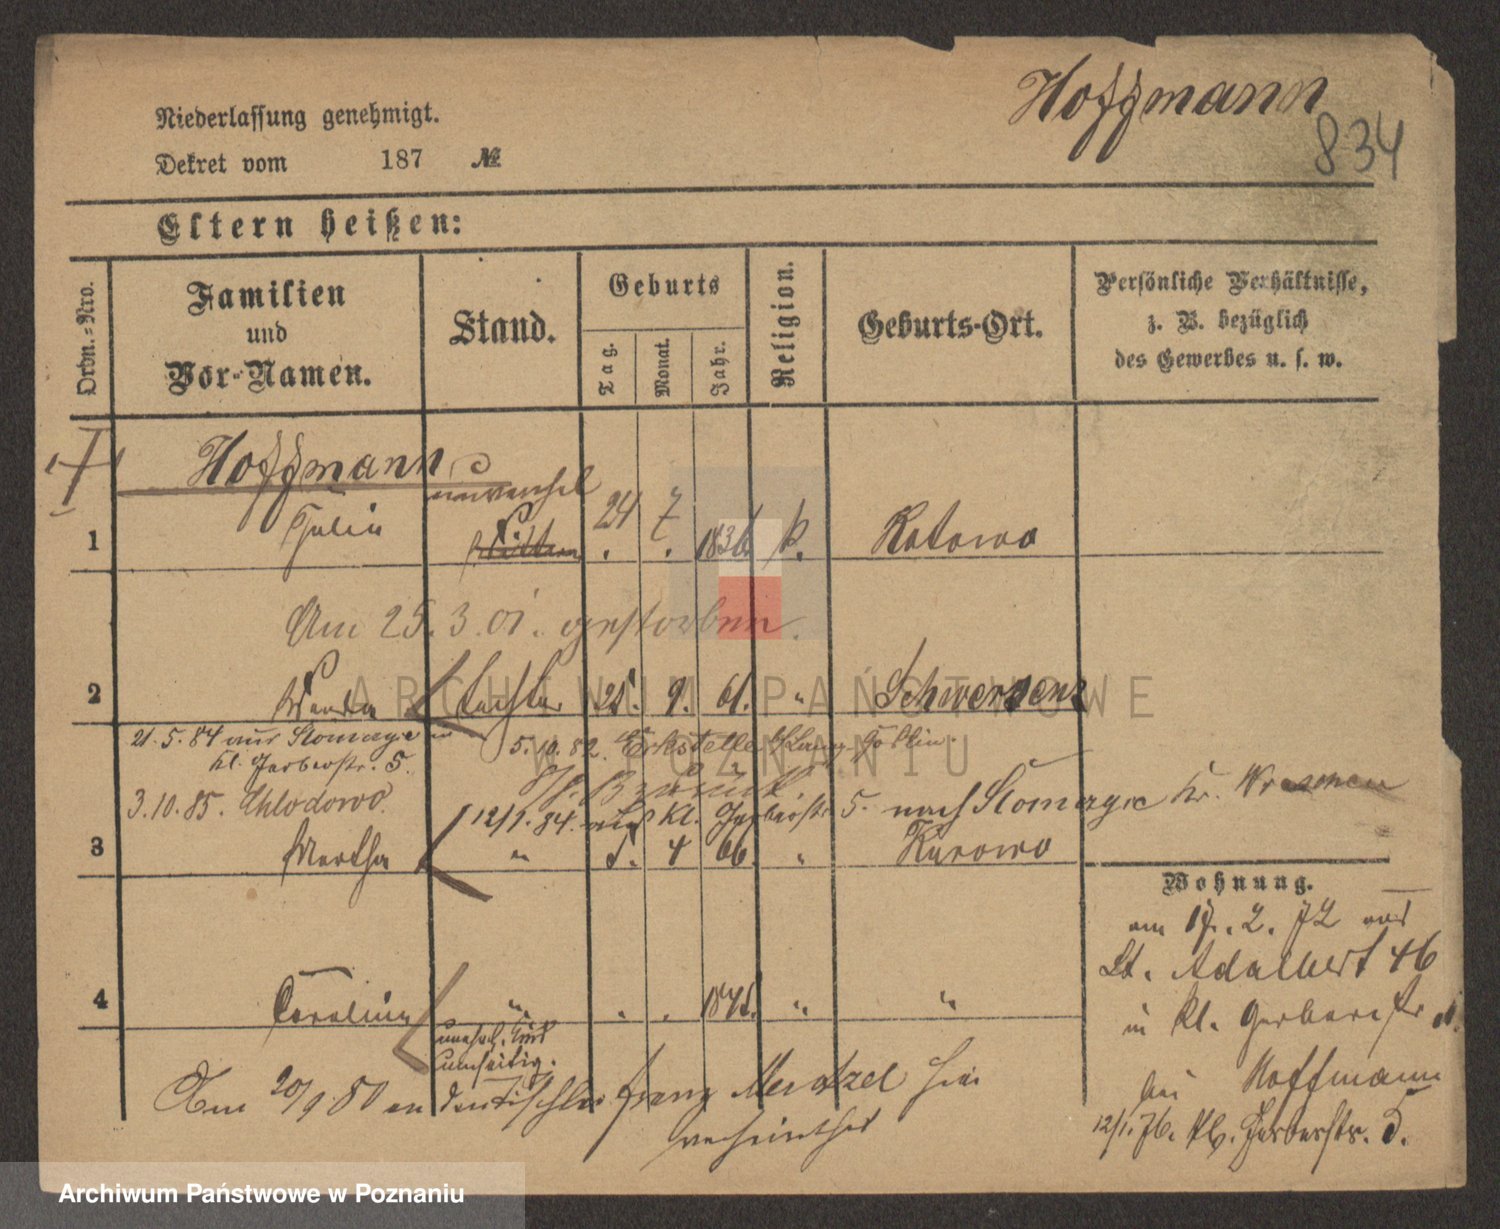 Hoffmann
834
Niederlassung genehmigt.
Dekret vom 187 №
Eltern heißen:
Ordn.=Nro.
Familien
und
Vor=Namen.
Stand.
Geburts
Tag.
Monat.
Jahr.
Religion.
Geburts=Ort.
Persönliche Verhältnisse,
z. B. bezüglich
des Gewerbes u. s. w.
Hoffmann
1 24 7 1836. k. Rotowo
Am 25. 3. 01. gestorben.
2 Wanda Tochter 25. 9. 61. " Schwersenz
21. 5. 84 aus Slomczyce
kl. Gerberstr. 5.
5. 10. 82.
3. 10. 85. Chlodowo
12/1. 84. auf kl. Gerberstr 5. nach Slomczyce Kr. Wreschen
3 Martha " 5. 4 66. " Kurowo
4 Caroline " . . 1875. " "
Am 20/9. 80 an Franz Mentzel hier
verheirathet
Wohnung.
am 17. 2. 72 aus
St. Adalbert 46
in kl. Gerberstr
bei Hoffmann
12/1. 76. kl. Gerberstr. 5.
ARCHIWUM PAŃSTWOWE
W POZNANIU
Archiwum Państwowe w Poznaniu